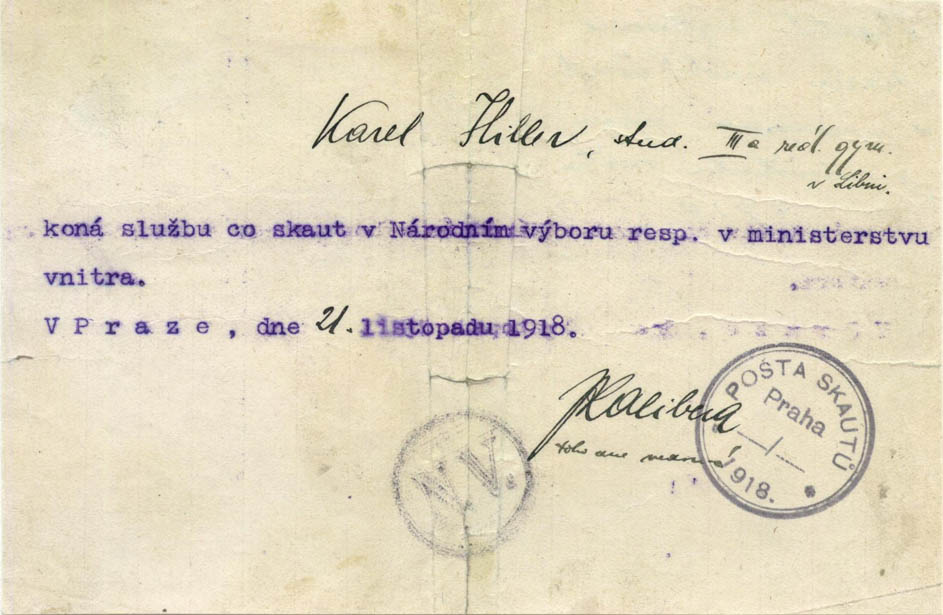 Karel Hiller, stud. III a reál. gym.
v Libni.
koná službu co skaut v Národním výboru resp. v ministerstvu
vnitra.
V Praze, dne 21. listopadu 1918.
POŠTA SKAUTŮ
Praha
1918.
N.V.